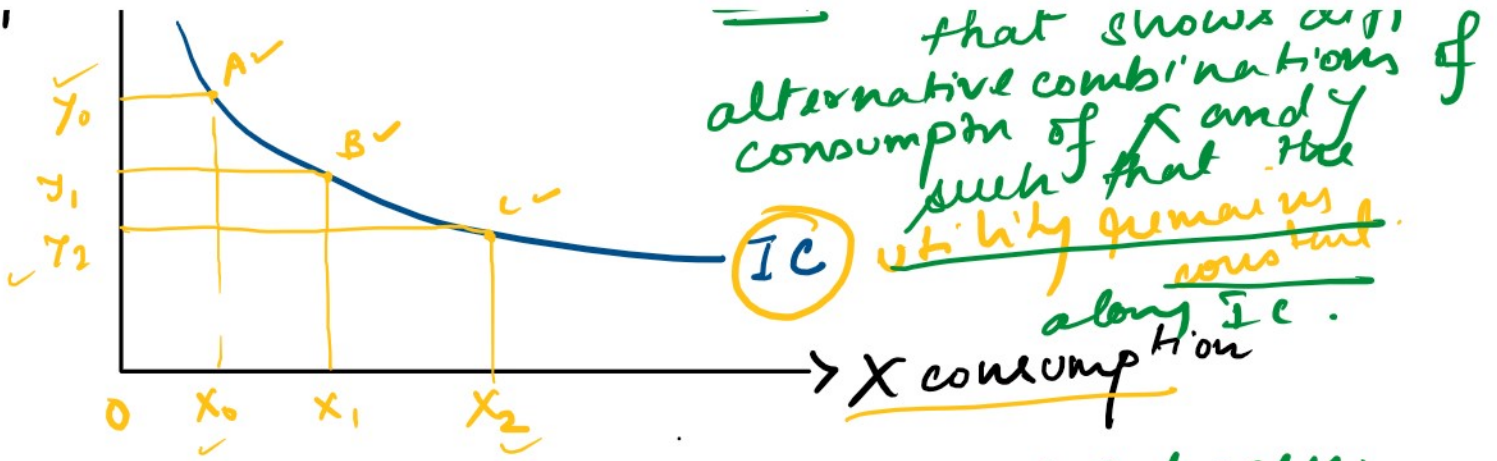 that shows diff
alternative combinations of
consumptn of X and Y
such that the
utility remains
constant
along IC.
A
B
C
Y0
Y1
Y2
IC
X consumption
0 X0 X1 X2